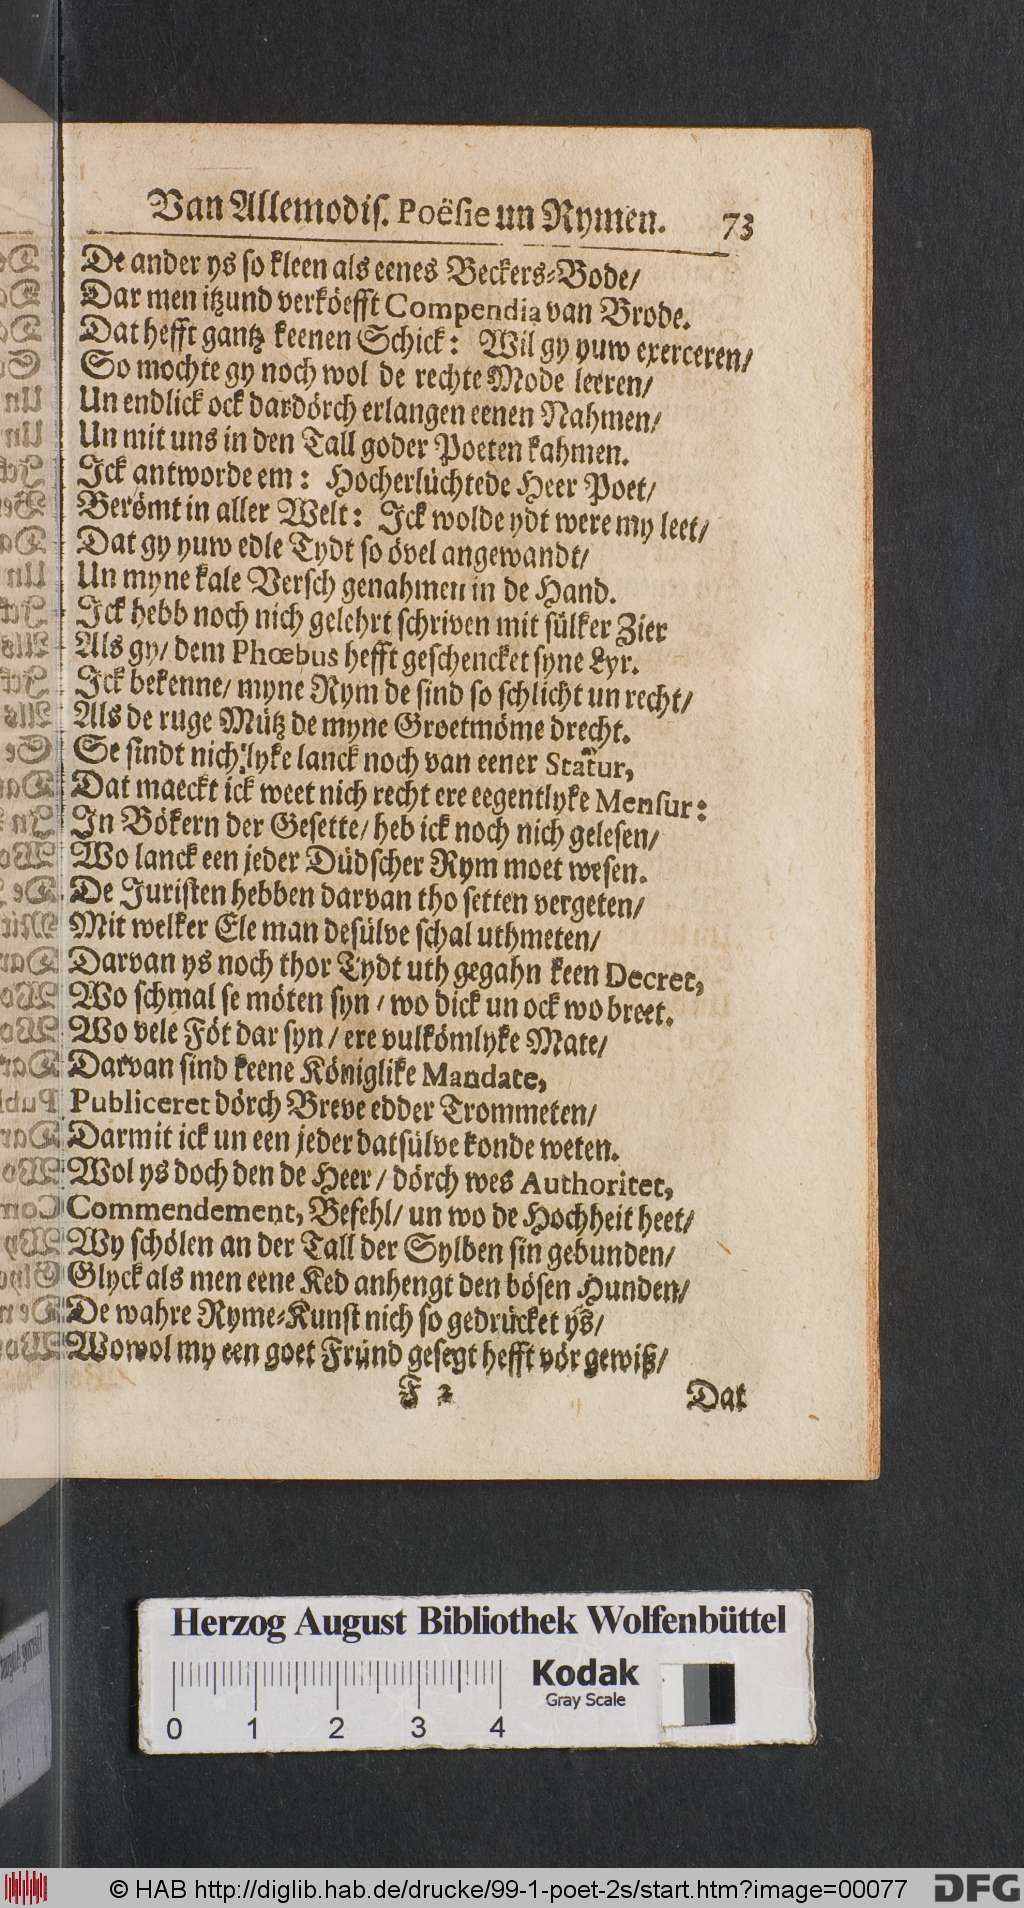 Van Allemodis. Poësie un Rymen. 73
De ander ys so kleen als eenes Beckers-Bode/
Dar men itzund verköefft Compendia van Brode.
Dat hefft gantz keenen Schick: Wil gy yuw exerceren/
So mochte gy noch wol de rechte Mode leeren/
Un endlick ock dardörch erlangen eenen Nahmen/
Un mit uns in den Tall goder Poeten kahmen.
Ick antworde em: Hocherlüchtede Heer Poet/
Berömt in aller Welt: Ick wolde ydt were my leet/
Dat gy yuw edle Tydt so övel angewandt/
Un myne kale Versch genahmen in de Hand.
Ick hebb noch nich gelehrt schriven mit sülker Zier
Als gy/ dem Phœbus hefft geschencket syne Lyr.
Ick bekenne/ myne Rym de sind so schlicht un recht/
Als de ruge Mütz de myne Groetmöme drecht.
Se sindt nich lyke lanck noch van eener Statur,
Dat maeckt ick weet nich recht ere eegentlyke Mensur:
In Bökern der Gesette/ heb ick noch nich gelesen/
Wo lanck een jeder Düdscher Rym moet wesen.
De Juristen hebben darvan tho setten vergeten/
Mit welker Ele man desülve schal uthmeten/
Darvan ys noch thor Tydt uth gegahn keen Decret,
Wo schmal se möten syn / wo dick un ock wo breet.
Wo vele Föt dar syn / ere vulkömlyke Mate/
Darvan sind keene Königlike Mandate,
Publiceret dörch Breve edder Trommeten/
Darmit ick un een jeder datsülve konde weten.
Wol ys doch den de Heer / dörch wes Authoritet,
Commendement, Befehl/ un wo de Hochheit heet/
Wy schölen an der Tall der Sylben sin gebunden/
Glyck als men eene Ked anhengt den bösen Hunden/
De wahre Ryme-Kunst nich so gedrücket ys/
Wowol my een goet Fründ gesegt hefft vör gewiß/
F 2 Dat
Herzog August Bibliothek Wolfenbüttel
Kodak
Gray Scale
0 1 2 3 4
© HAB http://diglib.hab.de/drucke/99-1-poet-2s/start.htm?image=00077 DFG